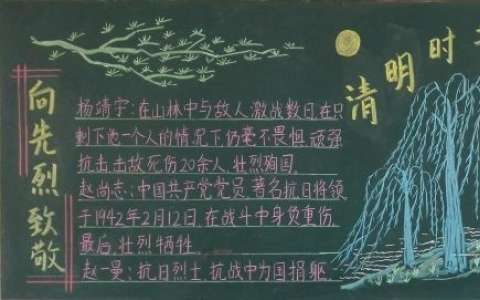 向先烈致敬
清明时
杨靖宇:在山林中与敌人激战数日,在只
剩下他一个人的情况下仍毫不畏惧,顽强
抗击,击敌死伤20余人,壮烈殉国.
赵尚志:中国共产党党员,著名抗日将领
于1942年2月12日,在战斗中身负重伤,
最后,壮烈牺牲.
赵一曼:抗日烈士,抗战中为国捐躯.